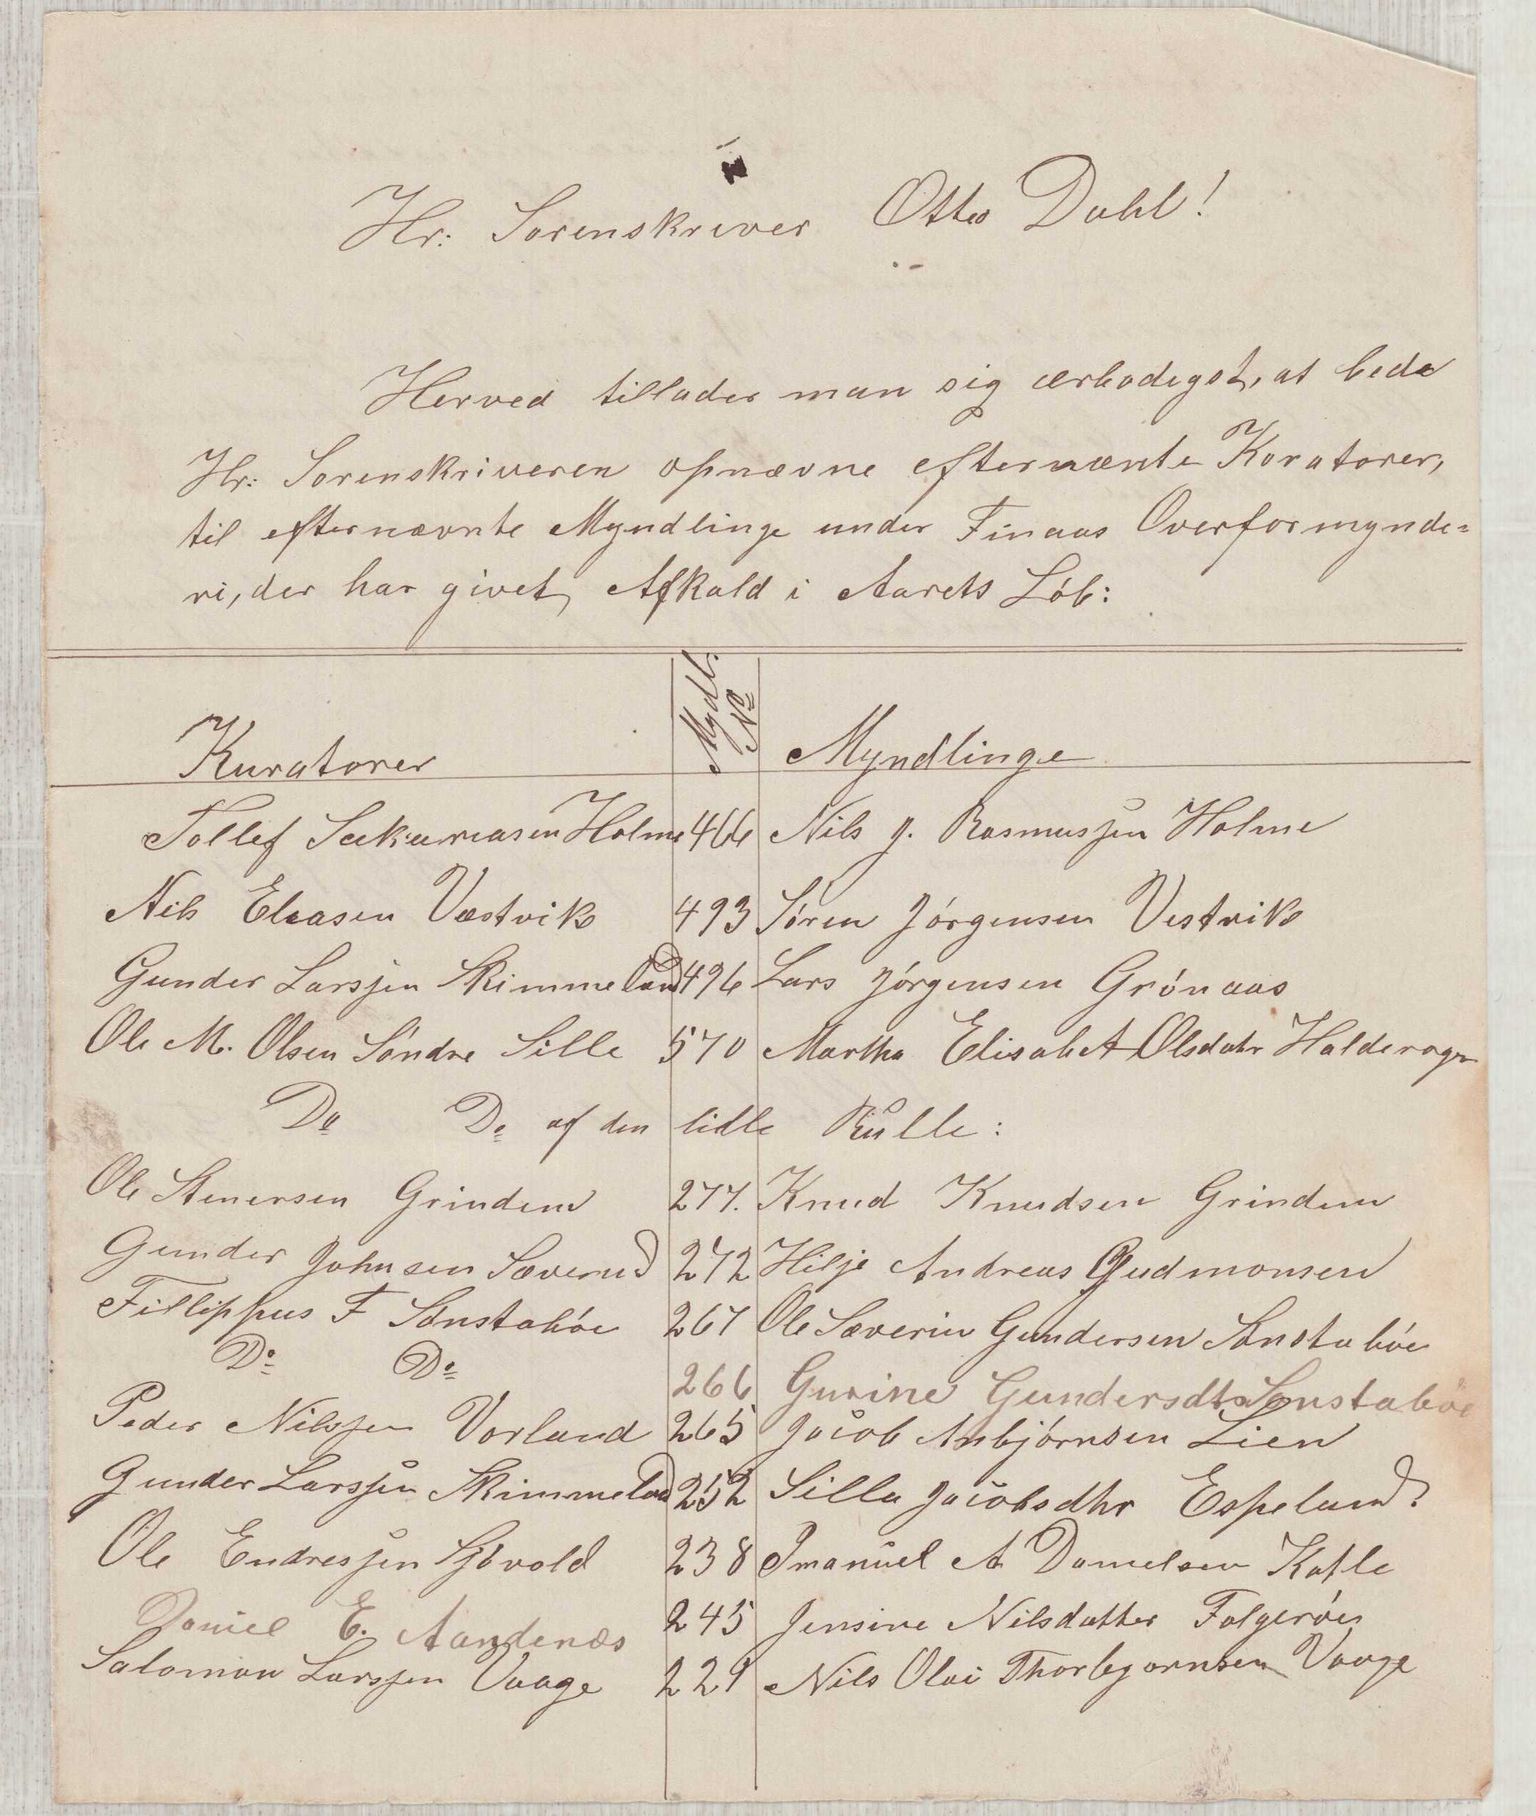 Hr: Sorenskriver Otto Dahl!
Herved tillader man sig ærbødigst, at bede
Hr: Sorenskriveren opnævne efternænte Koratorer,
til efternævnte Myndlinge under Finaas Overformynde=
ri, der har givet Afkald i Aarets Löb:
Kuratorer Myndl. No Myndlinge
Tollef Holme 466 Nils J. Rasmussen Holme
Nils Eleasen Vestvik 493 Sören Jörgensen Vestvik
Gunder Larssen Skimmeland 496 Lars Jörgensen Grönaas
Ole M. Olsen Söndre Sille 570 Martha Elisabet Olsdatr Halderager
Do Do af den lidle Rulle:
Ole Stenersen Grindem 277. Knud Knudsen Grindem
Gunder Johnsen Sæverud 272 Hilje Andreas Gudmonsen
Fillippus F Sönstaböe 267 Ole Sæverin Gundersen Sönstaböe
Do Do 266 Gurine Gundersdtr Sönstaböe
Peder Nilssen Vorland 265 Jacob Asbjörnsen Lien
Gunder Larssen Skimmeland 252 Silla Jacobsdhr Espeland.
Ole Endressen Sjövold 238 Imanuel A Danielsen Katle
Daniel E. Aandenæs 245 Jensine Nilsdatter Folgeröen
Salomon Larssen Vaage 229 Nils Olai Thorbjornsen Vaage